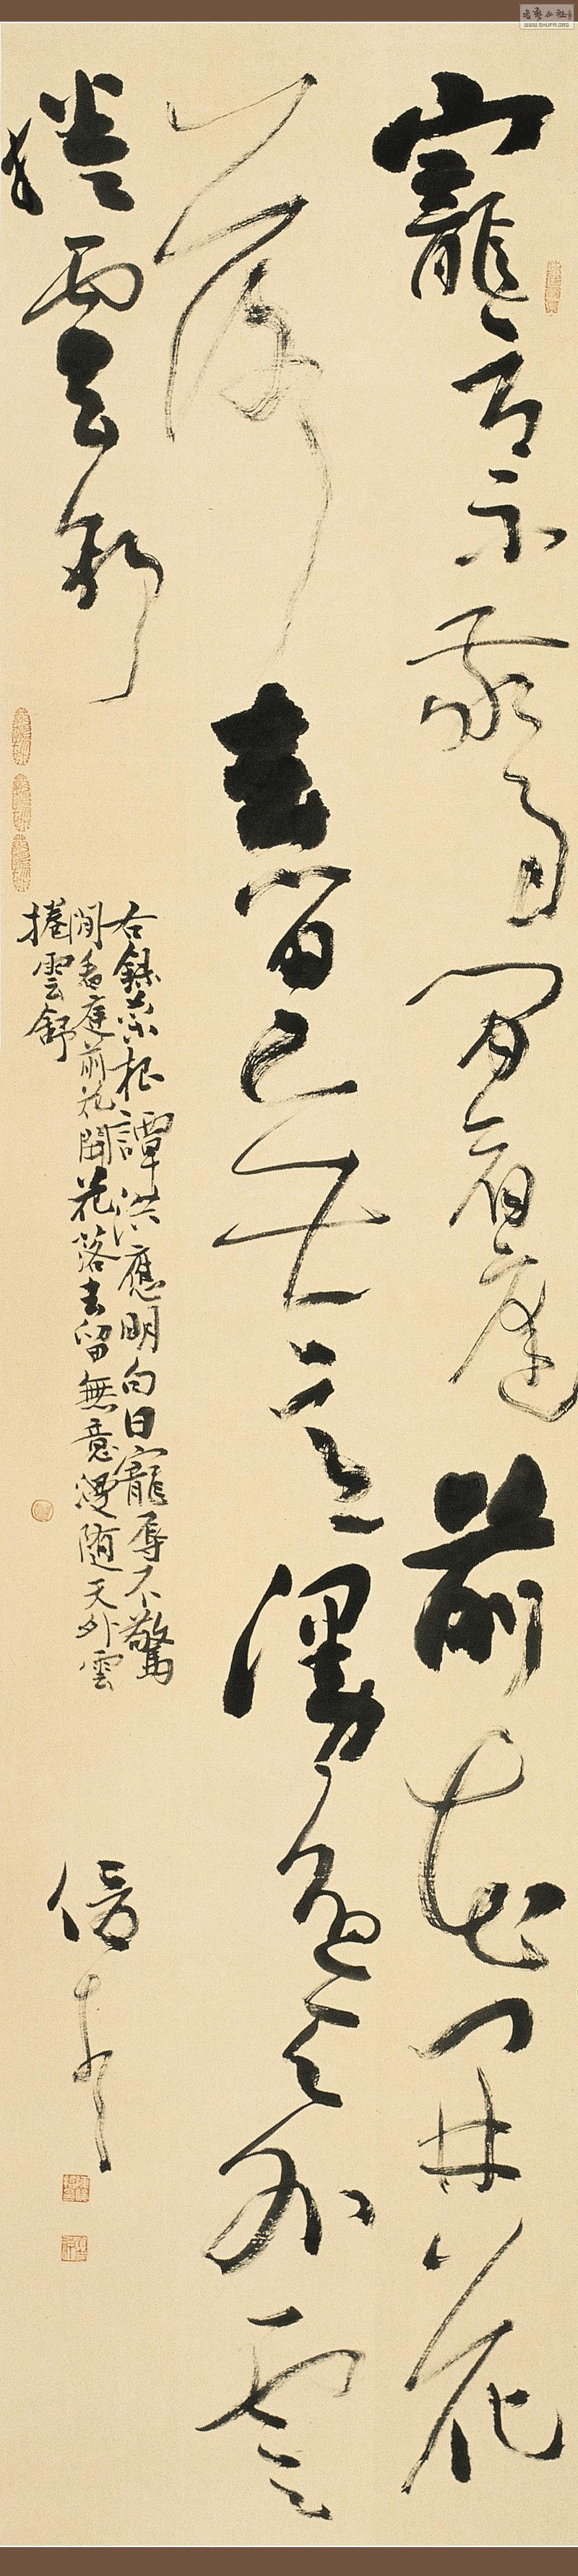 寵辱不驚閒看庭前花開花
落去留無意漫隨天外雲
捲雲舒
右錄菜根譚洪應明句曰寵辱不驚
閒看庭前花開花落去留無意漫随天外雲
捲雲舒
WWW.SHUFA.ORG